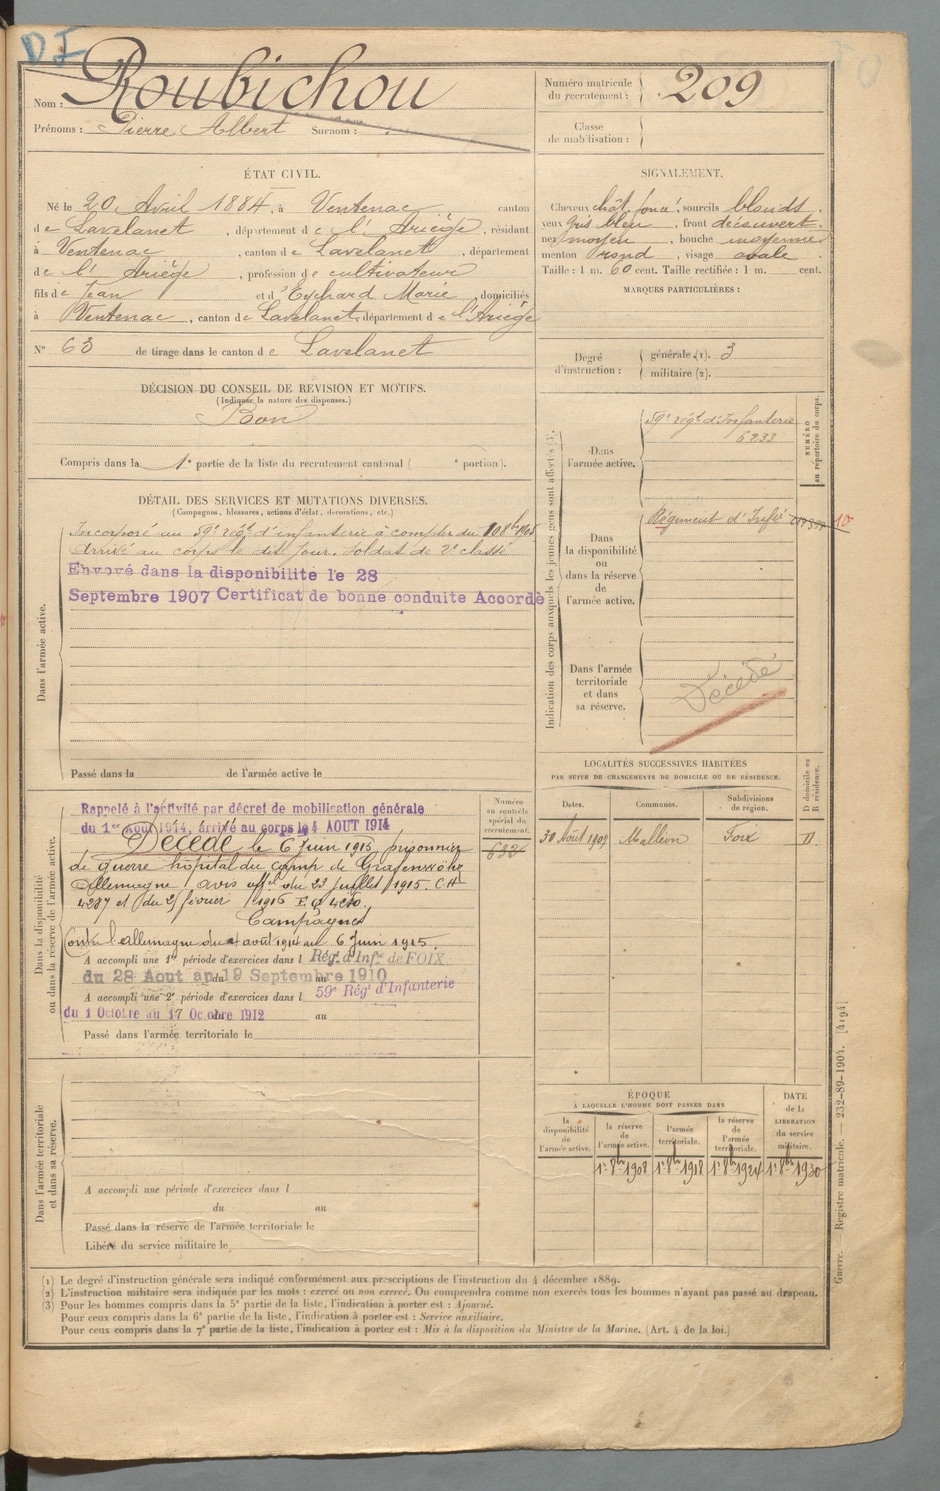 DI
Nom : Roubichou
Prénoms : Pierre Albert Surnom :
Numéro matricule du recrutement : 209
Classe de mobilisation :
ÉTAT CIVIL.
Né le 20 Avril 1884, à Ventenac canton
de Lavelanet, département de l'Ariège, résidant
à Ventenac, canton de Lavelanet, département
de l'Ariège, profession de cultivateur
fils de Jean et d'Eychard Marie, domiciliés
à Ventenac, canton de Lavelanet, département de l'Ariège
N° 63 de tirage dans le canton de Lavelanet
SIGNALEMENT.
Cheveux chât. foncé, sourcils blonds.
yeux gris bleu, front découvert.
nez moyen, bouche moyenne
menton rond, visage ovale.
Taille : 1 m. 60 cent. Taille rectifiée : 1 m. cent.
MARQUES PARTICULIÈRES :
Degré d'instruction : générale (1). 3
militaire (2).
DÉCISION DU CONSEIL DE REVISION ET MOTIFS.
(Indiquer la nature des dispenses.)
Bon
Compris dans la 1e partie de la liste du recrutement cantonal ( e portion).
DÉTAIL DES SERVICES ET MUTATIONS DIVERSES.
(Campagnes, blessures, actions d'éclat, décorations, etc.)
Dans l'armée active.
Incorporé au 59e régt d'infanterie à compter du 8bre 1905
Arrivé au corps le dit jour. Soldat de 2e classe
Envoyé dans la disponibilité le 28
Septembre 1907 Certificat de bonne conduite Accordé
Passé dans la de l'armée active le
Indication des corps auxquels les jeunes gens sont affectés (3).
NUMÉRO au répertoire du corps.
Dans l'armée active.
59e régt d'Infanterie
6233
Dans la disponibilité ou dans la réserve de l'armée active.
Régiment d'Infie
10
Dans l'armée territoriale et dans sa réserve.
Décédé
Dans la disponibilité ou dans la réserve de l'armée active.
Numéro au contrôle spécial du recrutement.
632
Rappelé à l'activité par décret de mobilisation générale
du 1er Aout 1914, arrivé au corps le 4 AOUT 1914
Décédé le 6 Juin 1915, prisonnier
de guerre hôpital du camp de Grafenwöhr
Allemagne, avis offel du 23 Juillet 1915. CH
4287 et du 21 février 1916
Campagnes
Contre l'Allemagne du 4 août 1914 au 6 Juin 1915.
A accompli une 1e période d'exercices dans l Régt d'Infie de FOIX
du 28 Aout au 19 Septembre 1910
A accompli une 2e période d'exercices dans l 59e Régt d'Infanterie
du 1 Octobre au 17 Octobre 1912 au
Passé dans l'armée territoriale le
LOCALITÉS SUCCESSIVES HABITÉES
PAR SUITE DE CHANGEMENTS DE DOMICILE OU DE RÉSIDENCE.
Dates. Communes. Subdivisions de région. D domicile ou R résidence.
30 Août 1909 Malleon Foix D
Dans l'armée territoriale et dans sa réserve.
A accompli une période d'exercices dans l
du au
Passé dans la réserve de l'armée territoriale le
Libéré du service militaire le
ÉPOQUE
À LAQUELLE L'HOMME DOIT PASSER DANS
la disponibilité de l'armée active. la réserve de l'armée active. l'armée territoriale. la réserve de l'armée territoriale. DATE de la LIBÉRATION du service militaire.
1er 8bre 1908 1er 8bre 1918 1er 8bre 1924 1er 8bre 1930
(1) Le degré d'instruction générale sera indiqué conformément aux prescriptions de l'instruction du 4 décembre 1889.
(2) L'instruction militaire sera indiquée par les mots : exercé ou non exercé. On comprendra comme non exercés tous les hommes n'ayant pas passé au drapeau.
(3) Pour les hommes compris dans la 5e partie de la liste, l'indication à porter est : Ajourné.
Pour ceux compris dans la 6e partie de la liste, l'indication à porter est : Service auxiliaire.
Pour ceux compris dans la 7e partie de la liste, l'indication à porter est : Mis à la disposition du Ministre de la Marine. (Art. 4 de la loi.)
Guerre. — Registre matricule. — 232-89-1904. [4194]